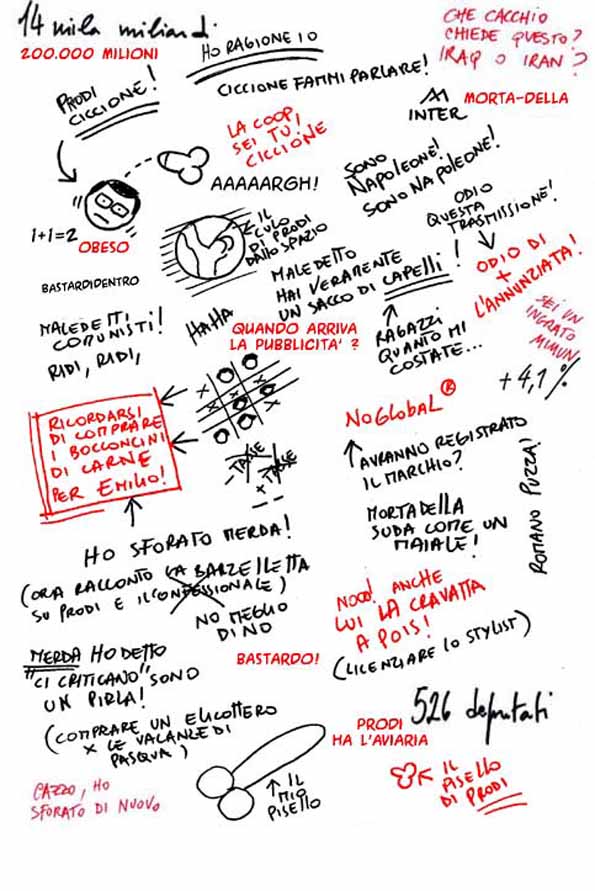 14 mila miliardi
200.000 MILIONI
HO RAGIONE IO
CHE CACCHIO
CHIEDE QUESTO?
IRAQ O IRAN?
PRODI
CICCIONE!
CICCIONE FAMMI PARLARE!
INTER
MORTA-DELLA
LA COOP
SEI TU,
CICCIONE
AAAAARGH!
SONO
NAPOLEONE!
SONO NAPOLEONE!
1+1=2
OBESO
IL
CULO
DI PRODI
DALLO SPAZIO
ODIO
QUESTA
TRASMISSIONE!
ODIO DI
+
L'ANNUNZIATA!
BASTARDIDENTRO
MALEDETTO
HAI VERAMENTE
UN SACCO DI CAPELLI!
MALEDETTI
COMUNISTI!
RIDI, RIDI,
HAHA
QUANDO ARRIVA
LA PUBBLICITA' ?
RAGAZZI
QUANTO MI
COSTATE...
SEI UN
INGRATO
MIMUN
+4,1%
RICORDARSI
DI COMPRARE
I BOCCONCINI
DI CARNE
PER EMILIO!
X
X
X
- TASSE
- TASSE
+ TASSE
NOGLOBAL®
AVRANNO REGISTRATO
IL MARCHIO?
MORTADELLA
SUDA COME UN
MAIALE!
ROMANO PUZZA!
HO SFORATO MERDA!
(ORA RACCONTO LA BARZELLETTA
SU PRODI E IL CONFESSIONALE)
NO MEGLIO
DI NO
NOOO! ANCHE
LUI LA CRAVATTA
A POIS!
(LICENZIARE LO STYLIST)
BASTARDO!
MERDA HO DETTO
"CI CRITICANO" SONO
UN PIRLA!
(COMPRARE UN ELICOTTERO
X LE VACANZE DI
PASQUA)
526 deputati
PRODI
HA L'AVIARIA
IL
MIO
PISELLO
IL
PISELLO
DI PRODI
CAZZO, HO
SFORATO DI NUOVO